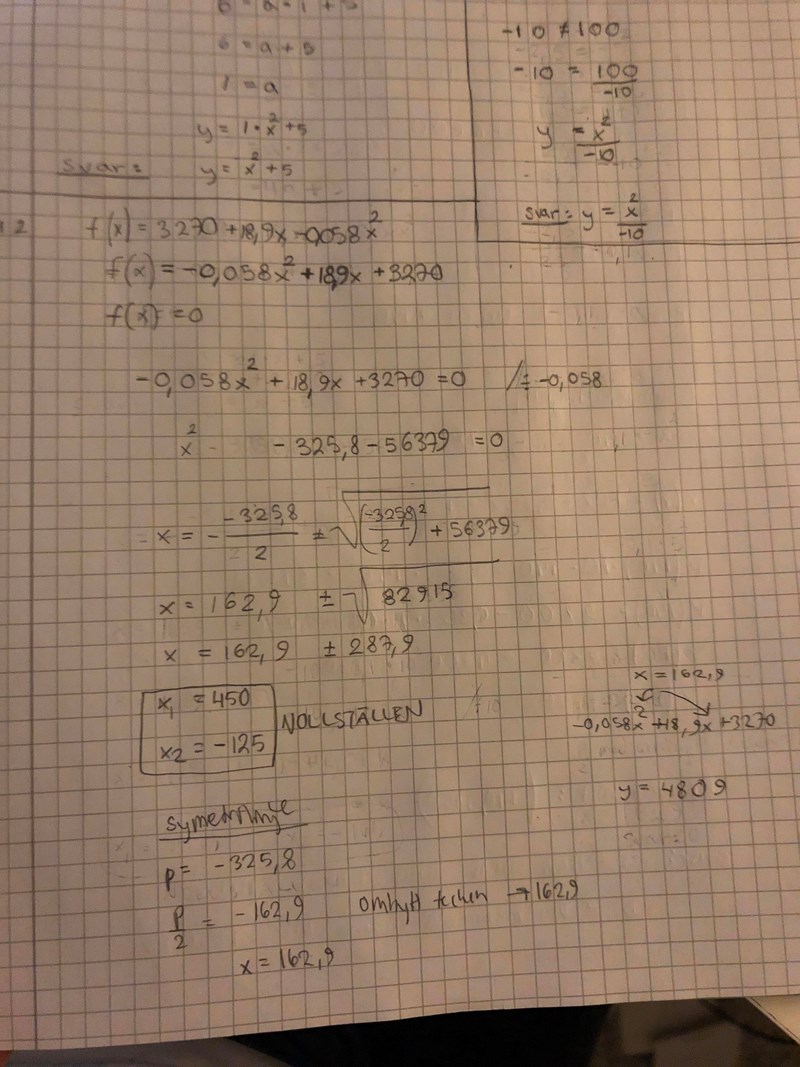 6 = a · 1 + 5
6 = a + 5
1 = a
y = 1 · x² + 5
svar: y = x² + 5
-10 ≠ 100
-10 = 100/-10
y = x²/-10
svar: y = x²/-10
f(x) = 3270 + 18,9x - 0,058x²
f(x) = -0,058x² + 18,9x + 3270
f(x) = 0
-0,058x² + 18,9x + 3270 = 0 /÷ -0,058
x² - 325,8 - 56379 = 0
x = - -325,8/2 ± √((-325,8/2)² + 56379)
x = 162,9 ± √82915
x = 162,9 ± 287,9
x₁ = 450
x₂ = -125
NOLLSTÄLLEN
x = 162,9
-0,058x² + 18,9x + 3270
y = 4809
symetrilinje
p = -325,8
p/2 = -162,9 ombytt tecken → 162,9
x = 162,9